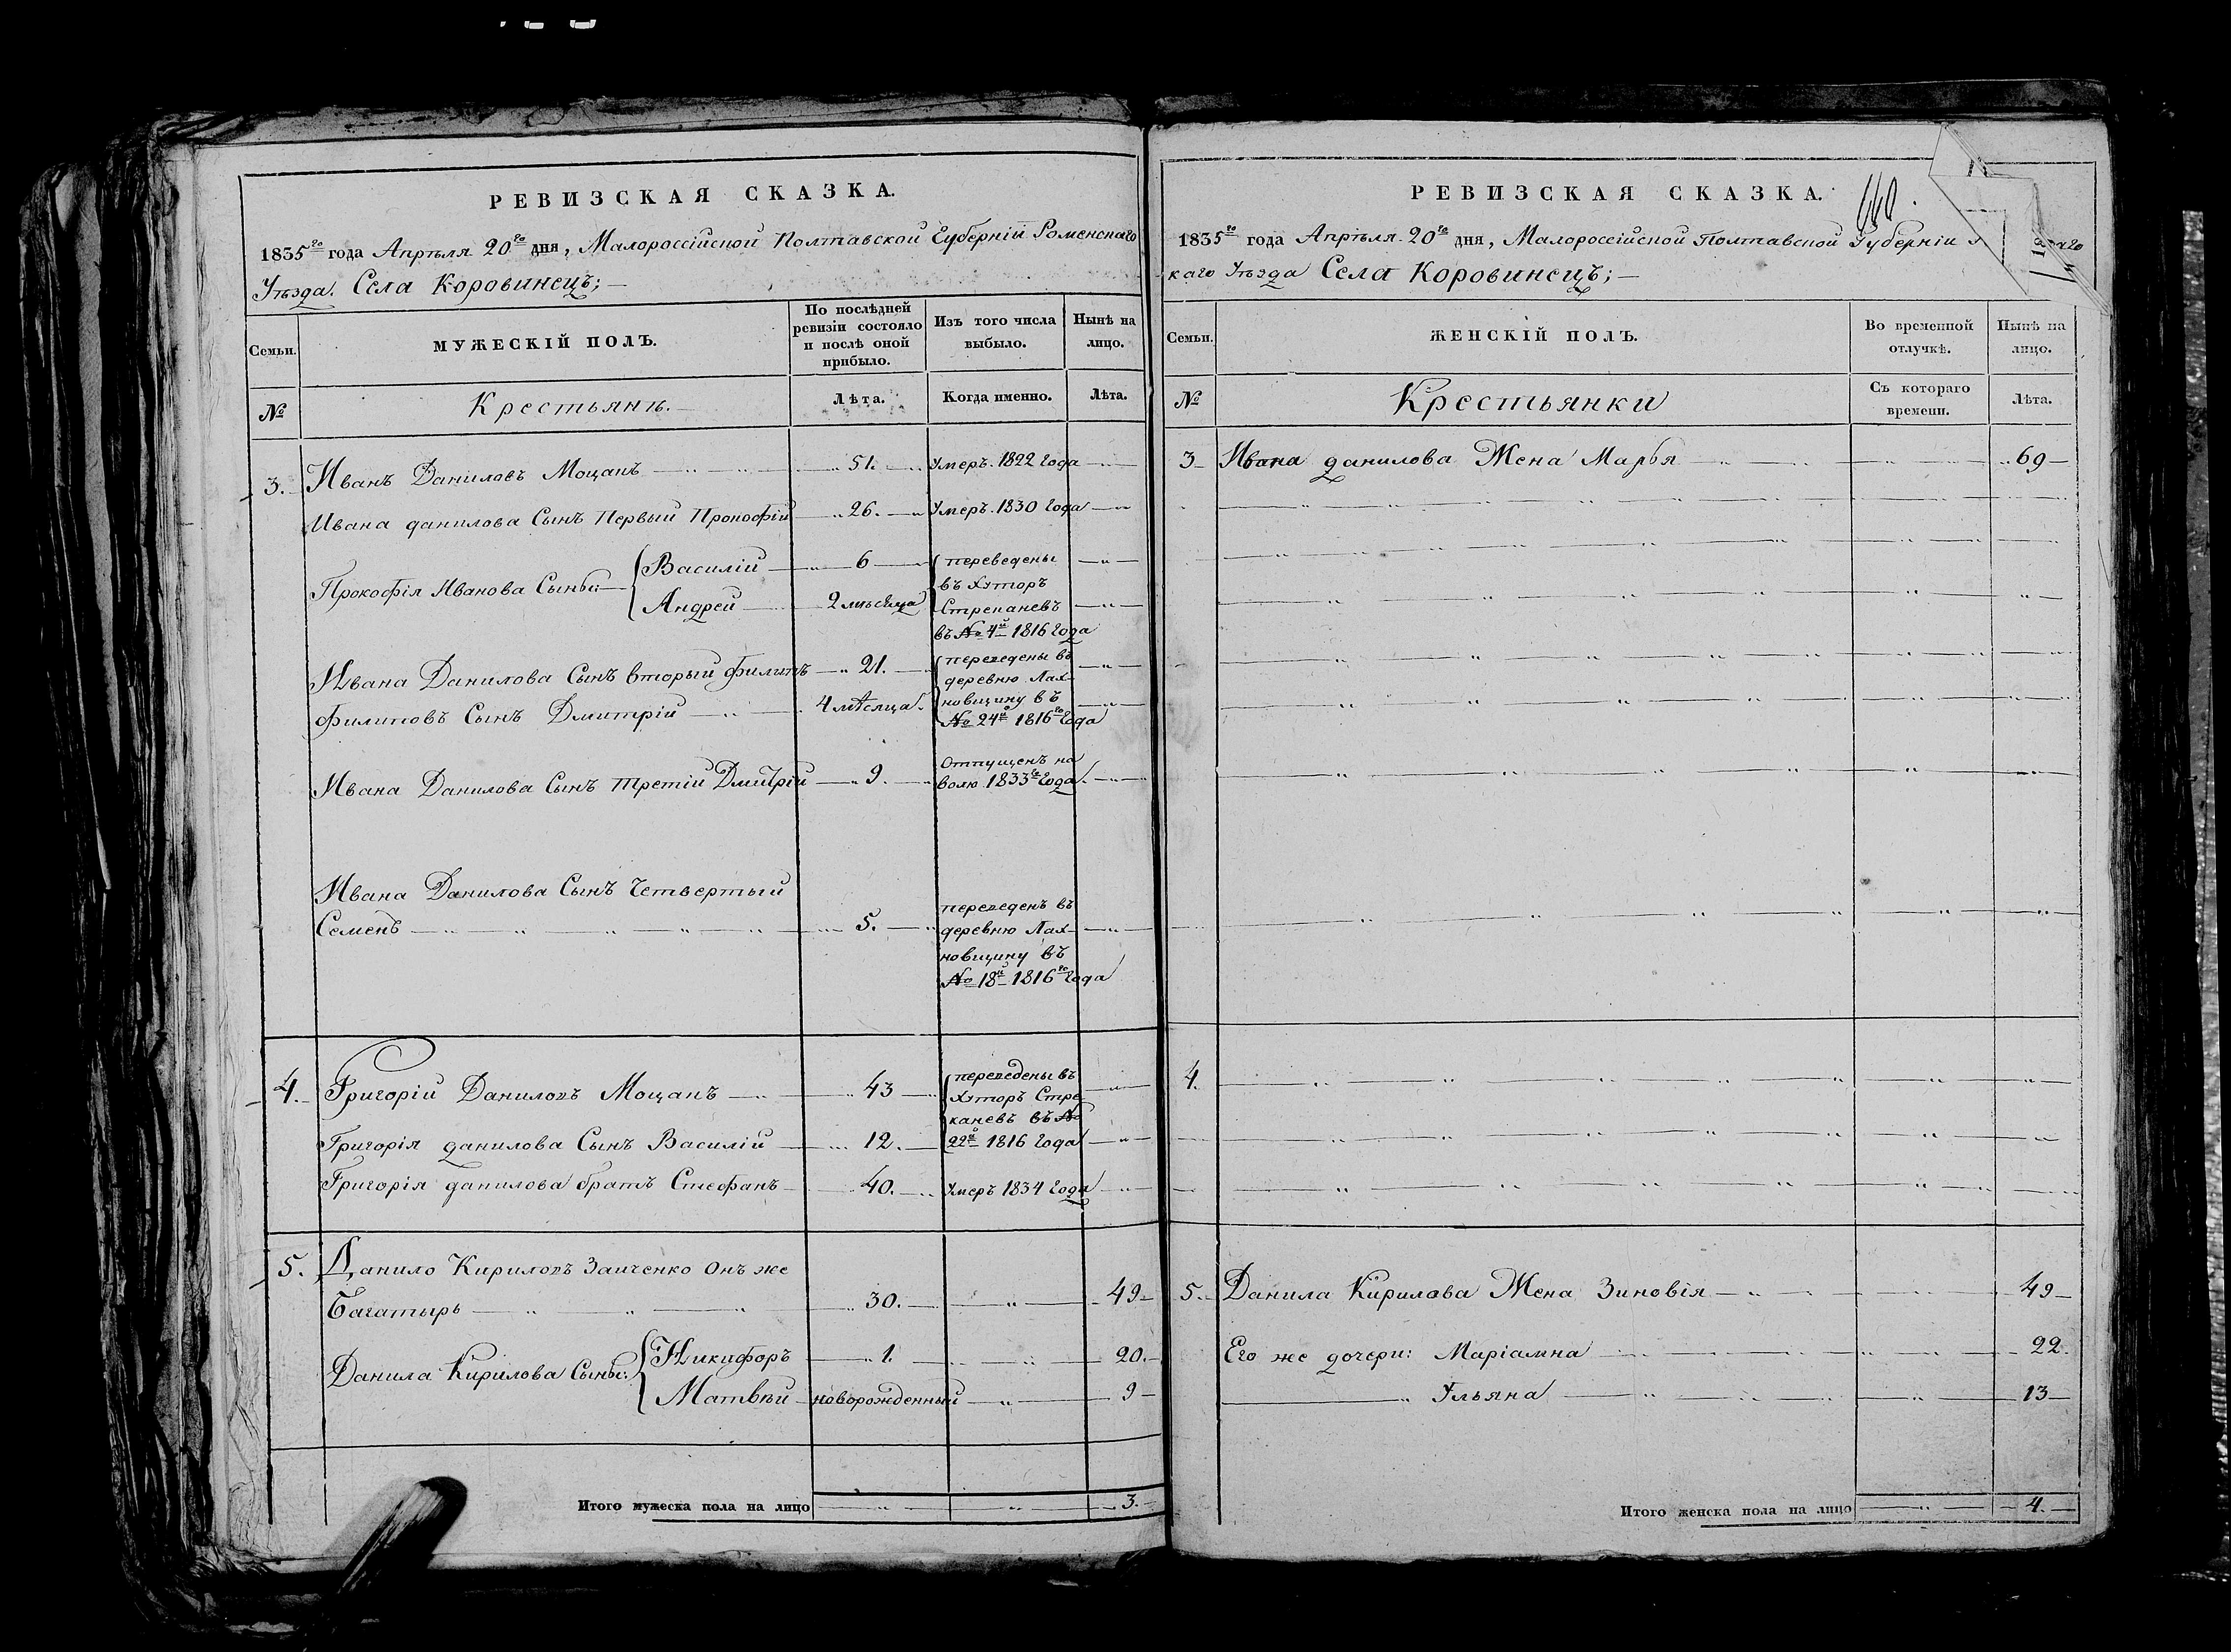 РЕВИЗСКАЯ СКАЗКА.
1835го года Апрѣля 20го дня, Малороссійской Полтавской Губерніи Роменскаго
Уѣзда. Села Коровинецъ;
Семьи.
МУЖЕСКІЙ ПОЛЪ.
По послѣдней ревизіи состояло и послѣ оной прибыло.
Изъ того числа выбыло.
Нынѣ на лицо.
№
Крестьянъ.
Лѣта.
Когда именно.
Лѣта.
3. Иванъ Даниловъ Моцанъ 51. Умеръ. 1822 года
Ивана данилова Сынъ Первый Прокофій 26. Умеръ. 1830 года
Прокофія Иванова Сыны: Василій 6 переведены
въ Хуторъ
Андрей 2 мѣсяца Стреканевъ
въ № 4й 1816 года
Ивана Данилова Сынъ вторый филипъ 21. переведены въ
деревню Лах-
филиповъ Сынъ Дмитрій 4 мѣсяца. новщину въ
№ 24й 1816го года
Отпущенъ на
Ивана Данилова Сынъ третій Дмитрій 9. волю 1833го года.
Ивана Данилова Сынъ Четвертый
переведенъ въ
Семенъ 5. деревню Лах-
новщину въ
№ 18й 1816го года
4. Григорій Даниловъ Моцанъ 43 переведены въ
Хуторъ Стре
каневъ въ №
Григорія данилова Сынъ Василій 12. 22й 1816 года
Григорія данилова братъ Стефанъ 40. Умеръ 1834 года
5. Данило Кириловъ Заиченко Онъ же
Багатырь 30. 49
Данила Кирилова Сыны: Никифоръ 1. 20.
Матвѣй новорожденный 9
Итого мужеска пола на лицо 3.
РЕВИЗСКАЯ СКАЗКА.
660.
1835го года Апрѣля. 20го дня, Малороссійской Полтавской Губерніи
каго Уѣзда Села Коровинецъ;
Семьи.
ЖЕНСКІЙ ПОЛЪ.
Во временной отлучкѣ.
Нынѣ на лицо.
№
Крестьянки
Съ котораго времени.
Лѣта.
3 Ивана данилова Жена Марья 69
4.
5. Данила Кирилова Жена Зиновія 49
Его же дочери: Маріамна 22.
Ульяна 13
Итого женска пола на лицо 4.